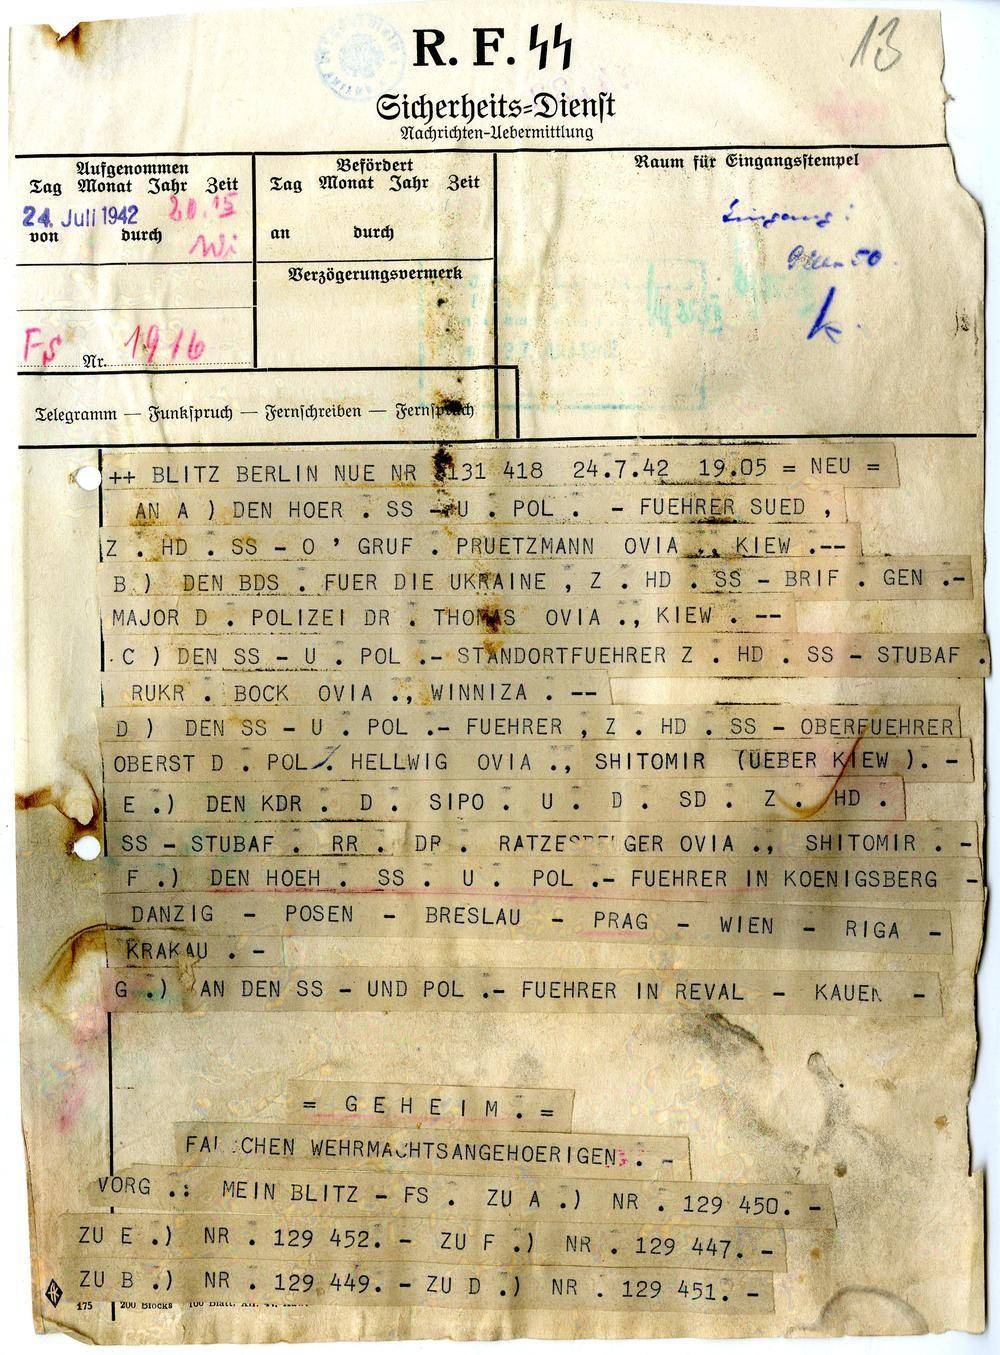 13
R. F. ᛋᛋ
Sicherheits-Dienst
Nachrichten-Uebermittlung
Aufgenommen
Tag Monat Jahr Zeit
24. Juli 1942 20.15
von durch
Wi
Befördert
Tag Monat Jahr Zeit
an durch
Verzögerungsvermerk
Raum für Eingangsstempel
Eingang:
k.
FS Nr. 1916
Telegramm — Funkspruch — Fernschreiben — Fernspruch
++ BLITZ BERLIN NUE NR 131 418 24.7.42 19.05 = NEU =
AN A ) DEN HOER . SS - U . POL . - FUEHRER SUED ,
Z . HD . SS - O ' GRUF . PRUETZMANN OVIA ., KIEW .--
B.) DEN BDS . FUER DIE UKRAINE , Z . HD . SS - BRIF . GEN .-
MAJOR D . POLIZEI DR . THOMAS OVIA ., KIEW . --
C ) DEN SS - U . POL .- STANDORTFUEHRER Z . HD . SS - STUBAF .
RUKR . BOCK OVIA ., WINNIZA . --
D ) DEN SS - U . POL .- FUEHRER , Z . HD . SS - OBERFUEHRER
OBERST D . POL . HELLWIG OVIA ., SHITOMIR (UEBER KIEW ). -
E .) DEN KDR . D . SIPO . U . D . SD . Z . HD .
SS - STUBAF . RR . DR . GER OVIA ., SHITOMIR . -
F .) DEN HOEH . SS . U . POL .- FUEHRER IN KOENIGSBERG -
DANZIG - POSEN - BRESLAU - PRAG - WIEN - RIGA -
KRAKAU . -
G .) AN DEN SS - UND POL .- FUEHRER IN REVAL - KAUEN -
= G E H E I M . =
FALSCHEN WEHRMACHTSANGEHOERIGEN . -
VORG .: MEIN BLITZ - FS . ZU A .) NR . 129 450. -
ZU E .) NR . 129 452. - ZU F .) NR . 129 447. -
ZU B .) NR . 129 449. - ZU D .) NR . 129 451. -
175 200 Blocks